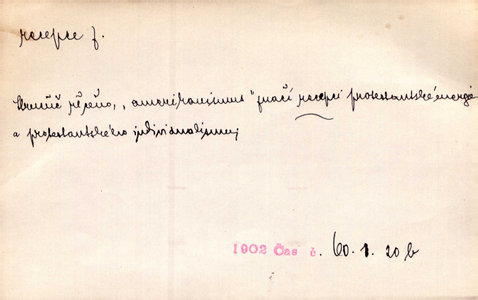 recepce f.
Stručně řečeno, „amerikanismus" značí recepci protestantské energie
a protestantského individualismu;
1902 Čas č. 60. 1. 20 b